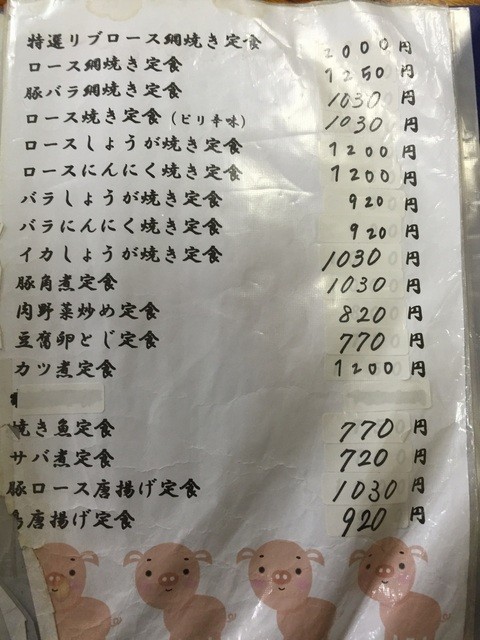 特選リブロース網焼き定食 2000円
ロース網焼き定食 1250円
豚バラ網焼き定食 1030円
ロース焼き定食（ピリ辛味） 1030円
ロースしょうが焼き定食 1200円
ロースにんにく焼き定食 1200円
バラしょうが焼き定食 920円
バラにんにく焼き定食 920円
イカしょうが焼き定食 1030円
豚角煮定食 1030円
肉野菜炒め定食 820円
豆腐卵とじ定食 770円
カツ煮定食 1200円
焼き魚定食 770円
サバ煮定食 720円
豚ロース唐揚げ定食 1030円
唐揚げ定食 920円